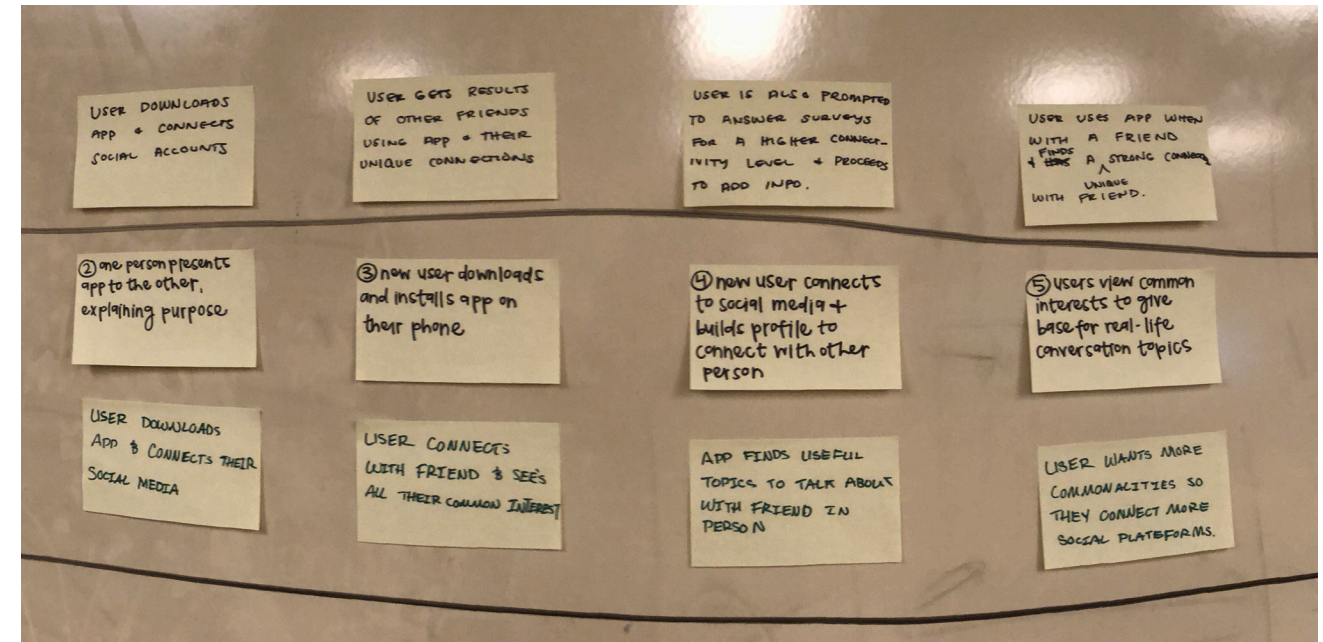 USER DOWNLOADS
APP & CONNECTS
SOCIAL ACCOUNTS
USER GETS RESULTS
OF OTHER FRIENDS
USING APP & THEIR
UNIQUE CONNECTIONS
USER IS ALSO PROMPTED
TO ANSWER SURVEYS
FOR A HIGHER CONNECT-
IVITY LEVEL & PROCEEDS
TO ADD INFO.
USER USES APP WHEN
WITH A FRIEND
& FINDS A UNIQUE STRONG
WITH FRIEND.
② one person presents
app to the other,
explaining purpose
③ new user downloads
and installs app on
their phone
④ new user connects
to social media +
builds profile to
connect with other
person
⑤ users view common
interests to give
base for real-life
conversation topics
USER DOWNLOADS
APP & CONNECTS THEIR
SOCIAL MEDIA
USER CONNECTS
WITH FRIEND & SEE'S
ALL THEIR COMMON INTEREST
APP FINDS USEFUL
TOPICS TO TALK ABOUT
WITH FRIEND IN
PERSON
USER WANTS MORE
COMMONALITIES SO
THEY CONNECT MORE
SOCIAL PLATEFORMS.